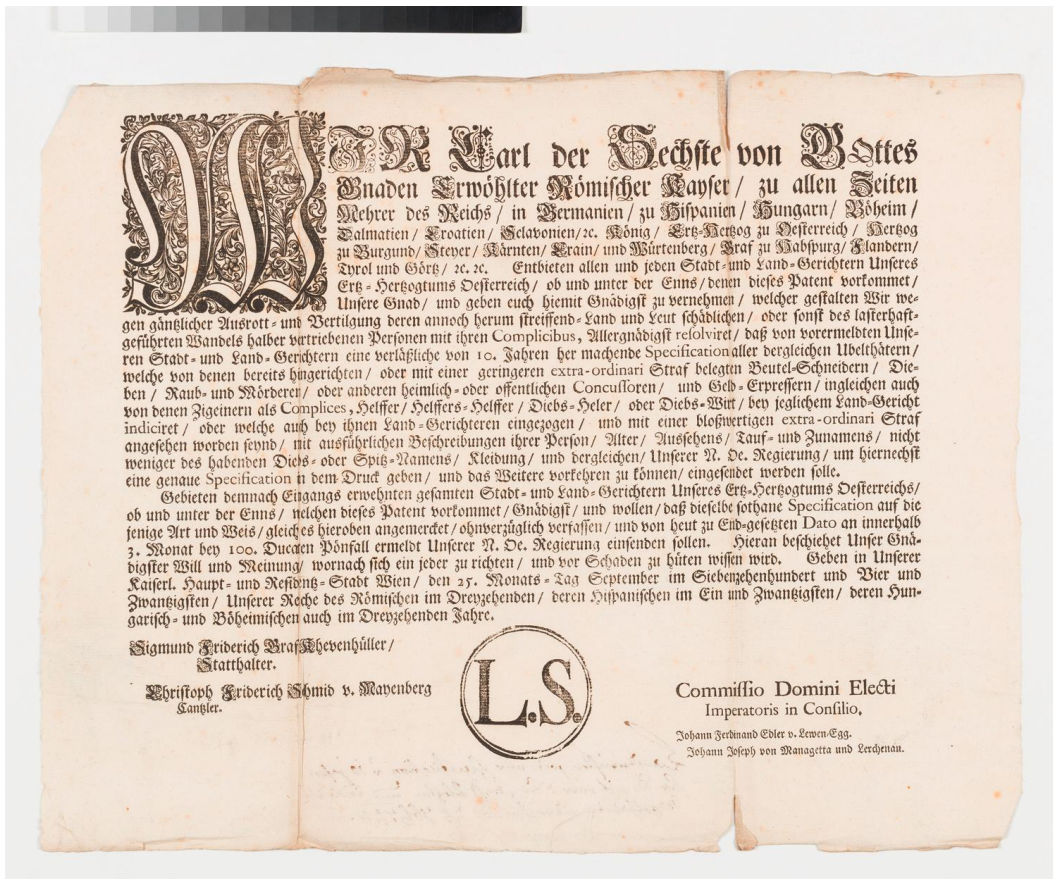 WJR Carl der Sechste von GOttes
Gnaden Erwöhlter Römischer Kayser / zu allen Zeiten
Mehrer des Reichs / in Germanien / zu Hispanien / Hungarn / Böheim /
Dalmatien / Croatien / Sclavonien / ꝛc. König / Ertz-Hertzog zu Oesterreich / Hertzog
zu Burgund / Steyer / Kärnten / Crain / und Würtenberg / Graf zu Habspurg / Flandern /
Tyrol und Görtz / ꝛc. ꝛc. Entbieten allen und jeden Stadt- und Land-Gerichtern Unseres
Ertz-Hertzogtums Oesterreich / ob und unter der Enns / denen dieses Patent vorkommet /
Unsere Gnad / und geben euch hiemit Gnädigst zu vernehmen / welcher gestalten Wir we-
gen gäntzlicher Ausrott- und Vertilgung deren annoch herum streiffend-Land und Leut schädlichen / oder sonst des lasterhaft-
geführten Wandels halber vertriebenen Personen mit ihren Complicibus, Allergnädigst resolviret / daß von vorermeldten Unse-
ren Stadt- und Land-Gerichtern eine verläßliche von 10. Jahren her machende Specification aller dergleichen Ubelthätern /
welche von denen bereits hingerichten / oder mit einer geringeren extra-ordinari Straf belegten Beutel-Schneidern / Die-
ben / Raub- und Mörderen / oder anderen heimlich- oder offentlichen Concussoren / und Geld-Erpressern / ingleichen auch
von denen Zigeinern als Complices, Helffer / Helffers-Helffer / Diebs-Heler / oder Diebs-Wirt / bey jeglichem Land-Gericht
indiciret / oder welche auch bey ihnen Land-Gerichteren eingezogen / und mit einer bloßwertigen extra-ordinari Straf
angesehen worden seynd / mit ausführlichen Beschreibungen ihrer Person / Alter / Aussehens / Tauf- und Zunamens / nicht
weniger des habenden Diebs- oder Spitz-Namens / Kleidung / und dergleichen / Unserer N. Oe. Regierung / um hiernechst
eine genaue Specification in dem Druck geben / und das Weitere vorkehren zu können / eingesendet werden solle.
Gebieten demnach Eingangs erwehnten gesamten Stadt- und Land-Gerichtern Unseres Ertz-Hertzogtums Oesterreichs /
ob und unter der Enns / welchen dieses Patent vorkommet / Gnädigst / und wollen / daß dieselbe sothane Specification auf die
jenige Art und Weis / gleich es hieroben angemercket / ohnverzüglich verfassen / und von heut zu End-gesetzten Dato an innerhalb
3. Monat bey 100. Ducaten Pönfall ermeldt Unserer N. Oe. Regierung einsenden sollen. Hieran beschiehet Unser Gnä-
digster Will und Meinung / wornach sich ein jeder zu richten / und vor Schaden zu hüten wissen wird. Geben in Unserer
Kaiserl. Haupt- und Residentz-Stadt Wien / den 25. Monats-Tag September im Siebenzehenhundert und Vier und
Zwantzigsten / Unserer Reiche des Römischen im Dreyzehenden / deren Hispanischen im Ein und Zwantzigsten / deren Hun-
garisch- und Böheimischen auch im Dreyzehenden Jahre.
Sigmund Friderich Graf Khevenhüller /
Statthalter.
Christoph Friderich Schmid v. Mayenberg
Cantzler.
L.S.
Commissio Domini Electi
Imperatoris in Consilio,
Johann Ferdinand Edler v. Lewen-Egg.
Johann Joseph von Managetta und Lerchenau.